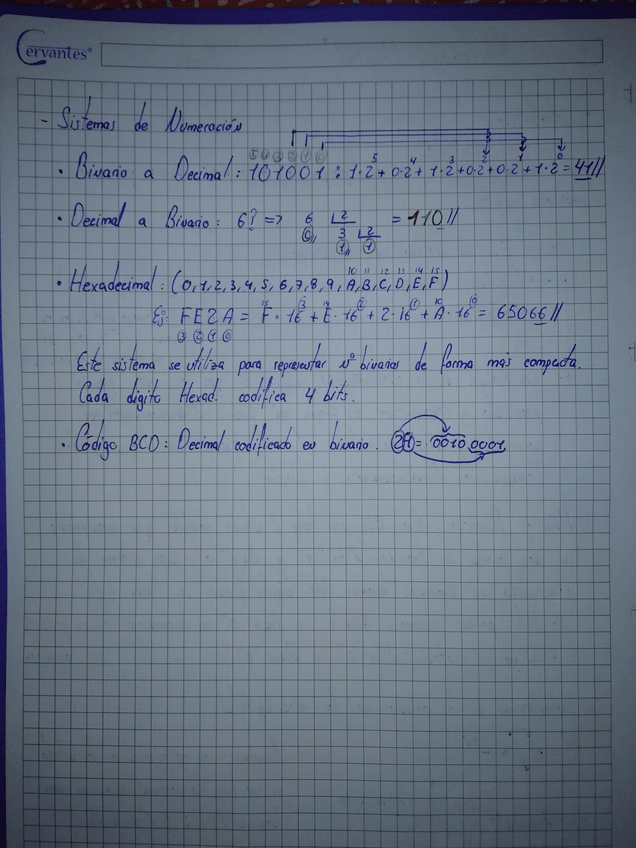 Cervantes®
- Sistemas de Numeración
5 4 3 2 1 0
· Binario a Decimal: 101001 : 1·2⁵+0·2⁴+1·2³+0·2²+0·2¹+1·2⁰=41//
· Decimal a Binario: 6? => 6 |2 = 110//
0// 3 |2
1// 1
10 11 12 13 14 15
· Hexadecimal: (0,1,2,3,4,5,6,7,8,9,A,B,C,D,E,F)
15 14 10
Ej: FE2A = F·16³+E·16²+2·16¹+A·16⁰= 65066//
3 2 1 0
Este sistema se utiliza para representar nº binarios de forma mas compacta.
Cada digito Hexad. codifica 4 bits.
· Código BCD: Decimal codificado en binario. 21= 0010 0001